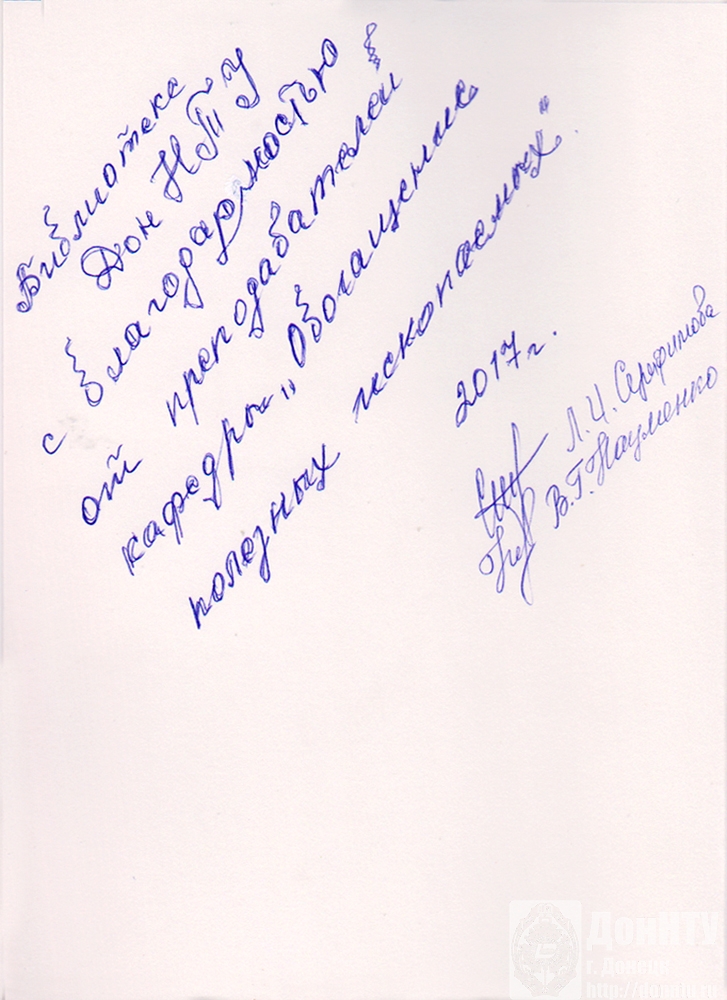 Библиотеке
Дон НТУ
с благодарностью
от преподавателей
кафедры „Обогащение
полезных ископаемых".
2017 г.
Л.И. Серафимова
В.Г. Науменко
ДонНТУ
г. Донецк
http://donntu.ru